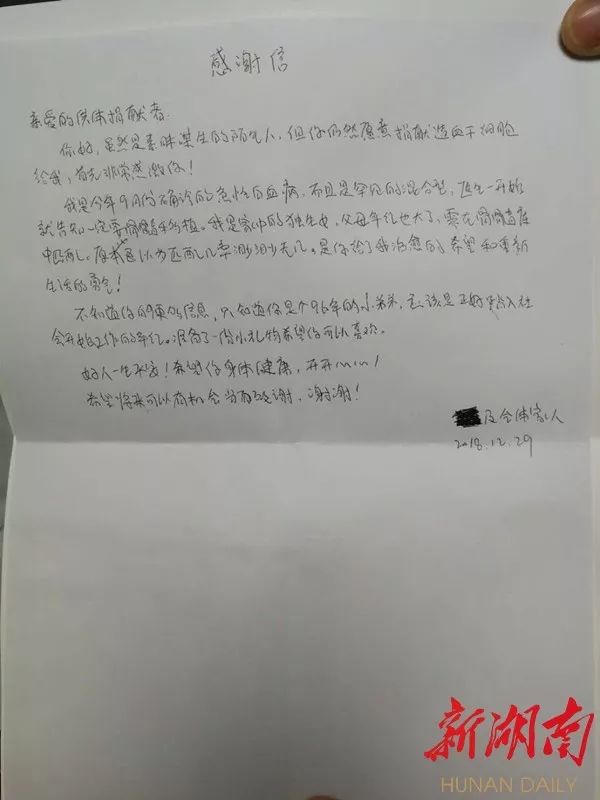 感谢信
亲爱的供体捐献者:
你好,虽然是素昧谋生的陌生人,但你仍然愿意捐献造血干细胞
给我,首先非常感激你!
我是今年9月份确诊的急性白血病,而且是罕见的混合型,医生一开始
就告知一定要骨髓移植。我是家中的独生女,父母年纪也大了,需在骨髓库
中匹配。原本以为匹配几率渺渺无几。是你给了我治愈的希望和重新
生活的勇气!
不知道你的更多信息,只知道你是个96年的小弟弟,应该是正好踏入社
会开始工作的年纪。准备了一份小礼物希望你可以喜欢。
好人一生平安!希望你身体健康,开开心心!
希望将来可以有机会当面致谢,谢谢!
及全体家人
2018.12.29
新湖南
HUNAN DAILY